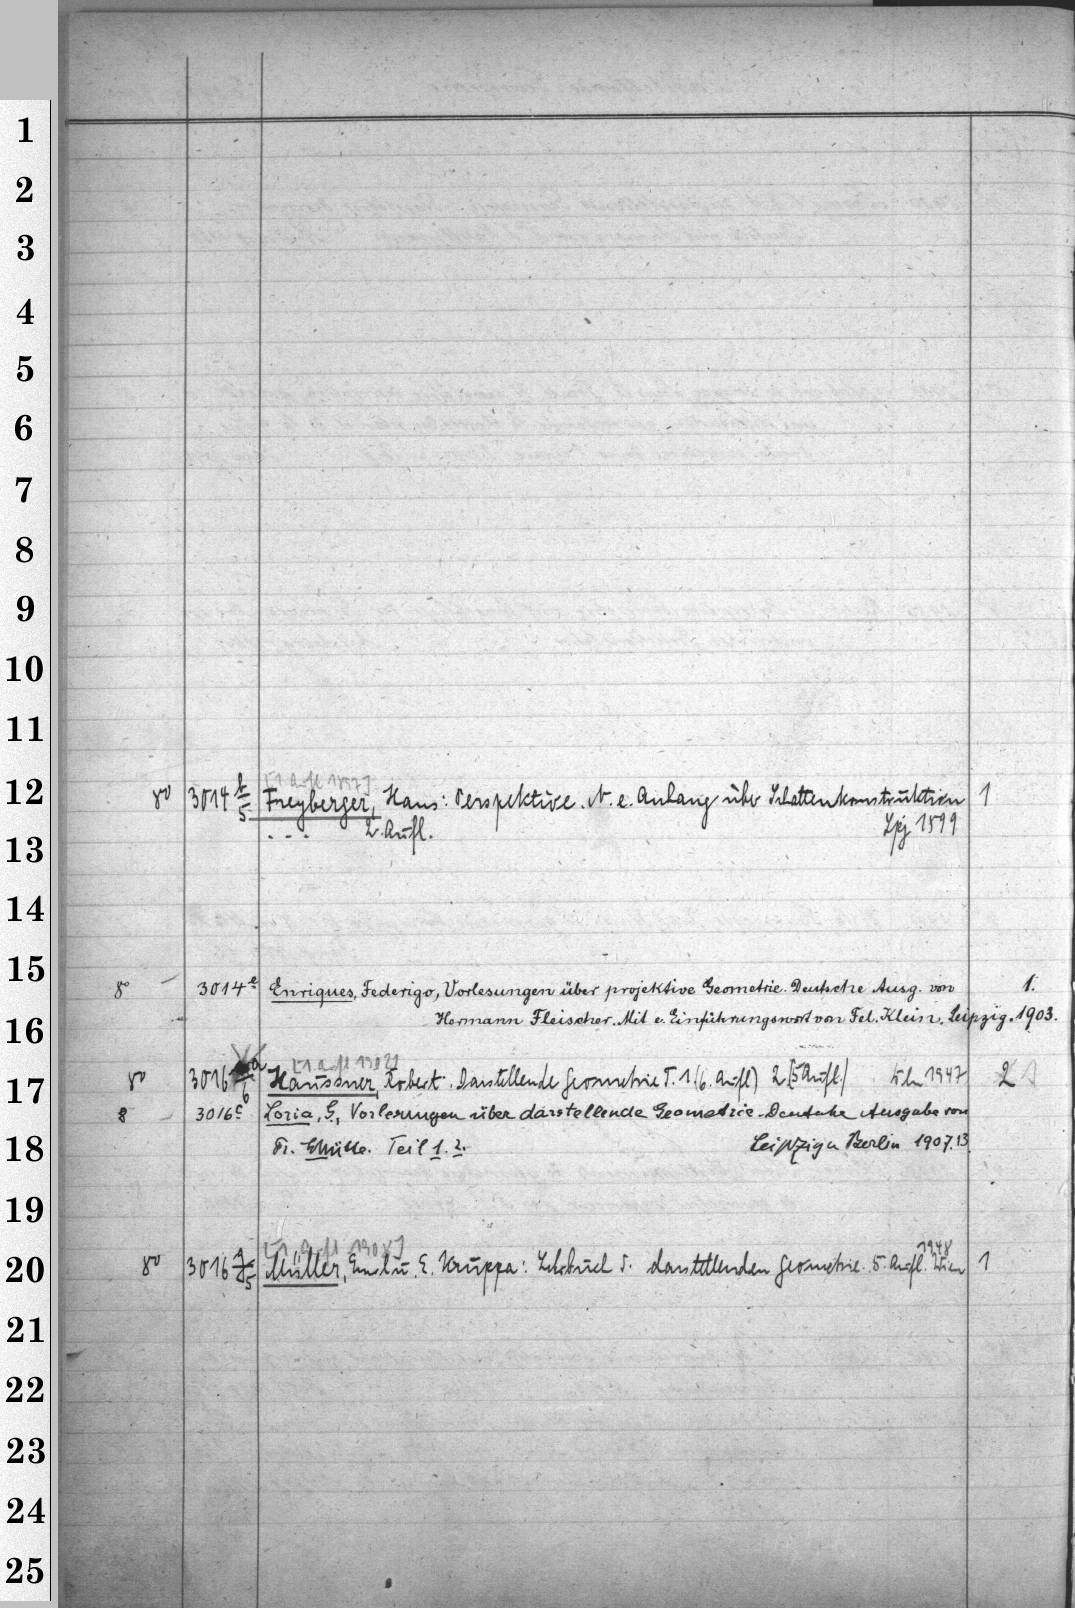 1
2
3
4
5
6
7
8
9
10
11
[1 Aufl 1897]
12 8º 3014 b/5 Freyberger, Hans: Perspektive. N. e. Anhang über Schattenkonstruktion 1
. . . 2. Aufl. Lpz 1899
13
14
15
8º 3014e Enriques, Federigo, Vorlesungen über projektive Geometrie. Deutsche Ausg. von 1.
16 Hermann Fleischer. Mit e. Einführungswort von Fel. Klein. Leipzig. 1903.
[1 Aufl 1902]
17 8º 3016 a/6 Haussner, Robert. Darstellende Geometrie T. 1 (6. Aufl) 2 [5 Aufl.] 1947 2
8 3016c Loria, G., Vorlesungen über darstellende Geometrie. Deutsche Ausgabe von
18 Fr. Schütte. Teil 1. 2. Leipzig u Berlin 1907.13.
19
[1 Aufl 1908]
20 8º 3016 Müller, Emil u. E. Kruppa: Lehrbuch d. darstellenden Geometrie. 5. Aufl. Wien 1948 1
21
22
23
24
25